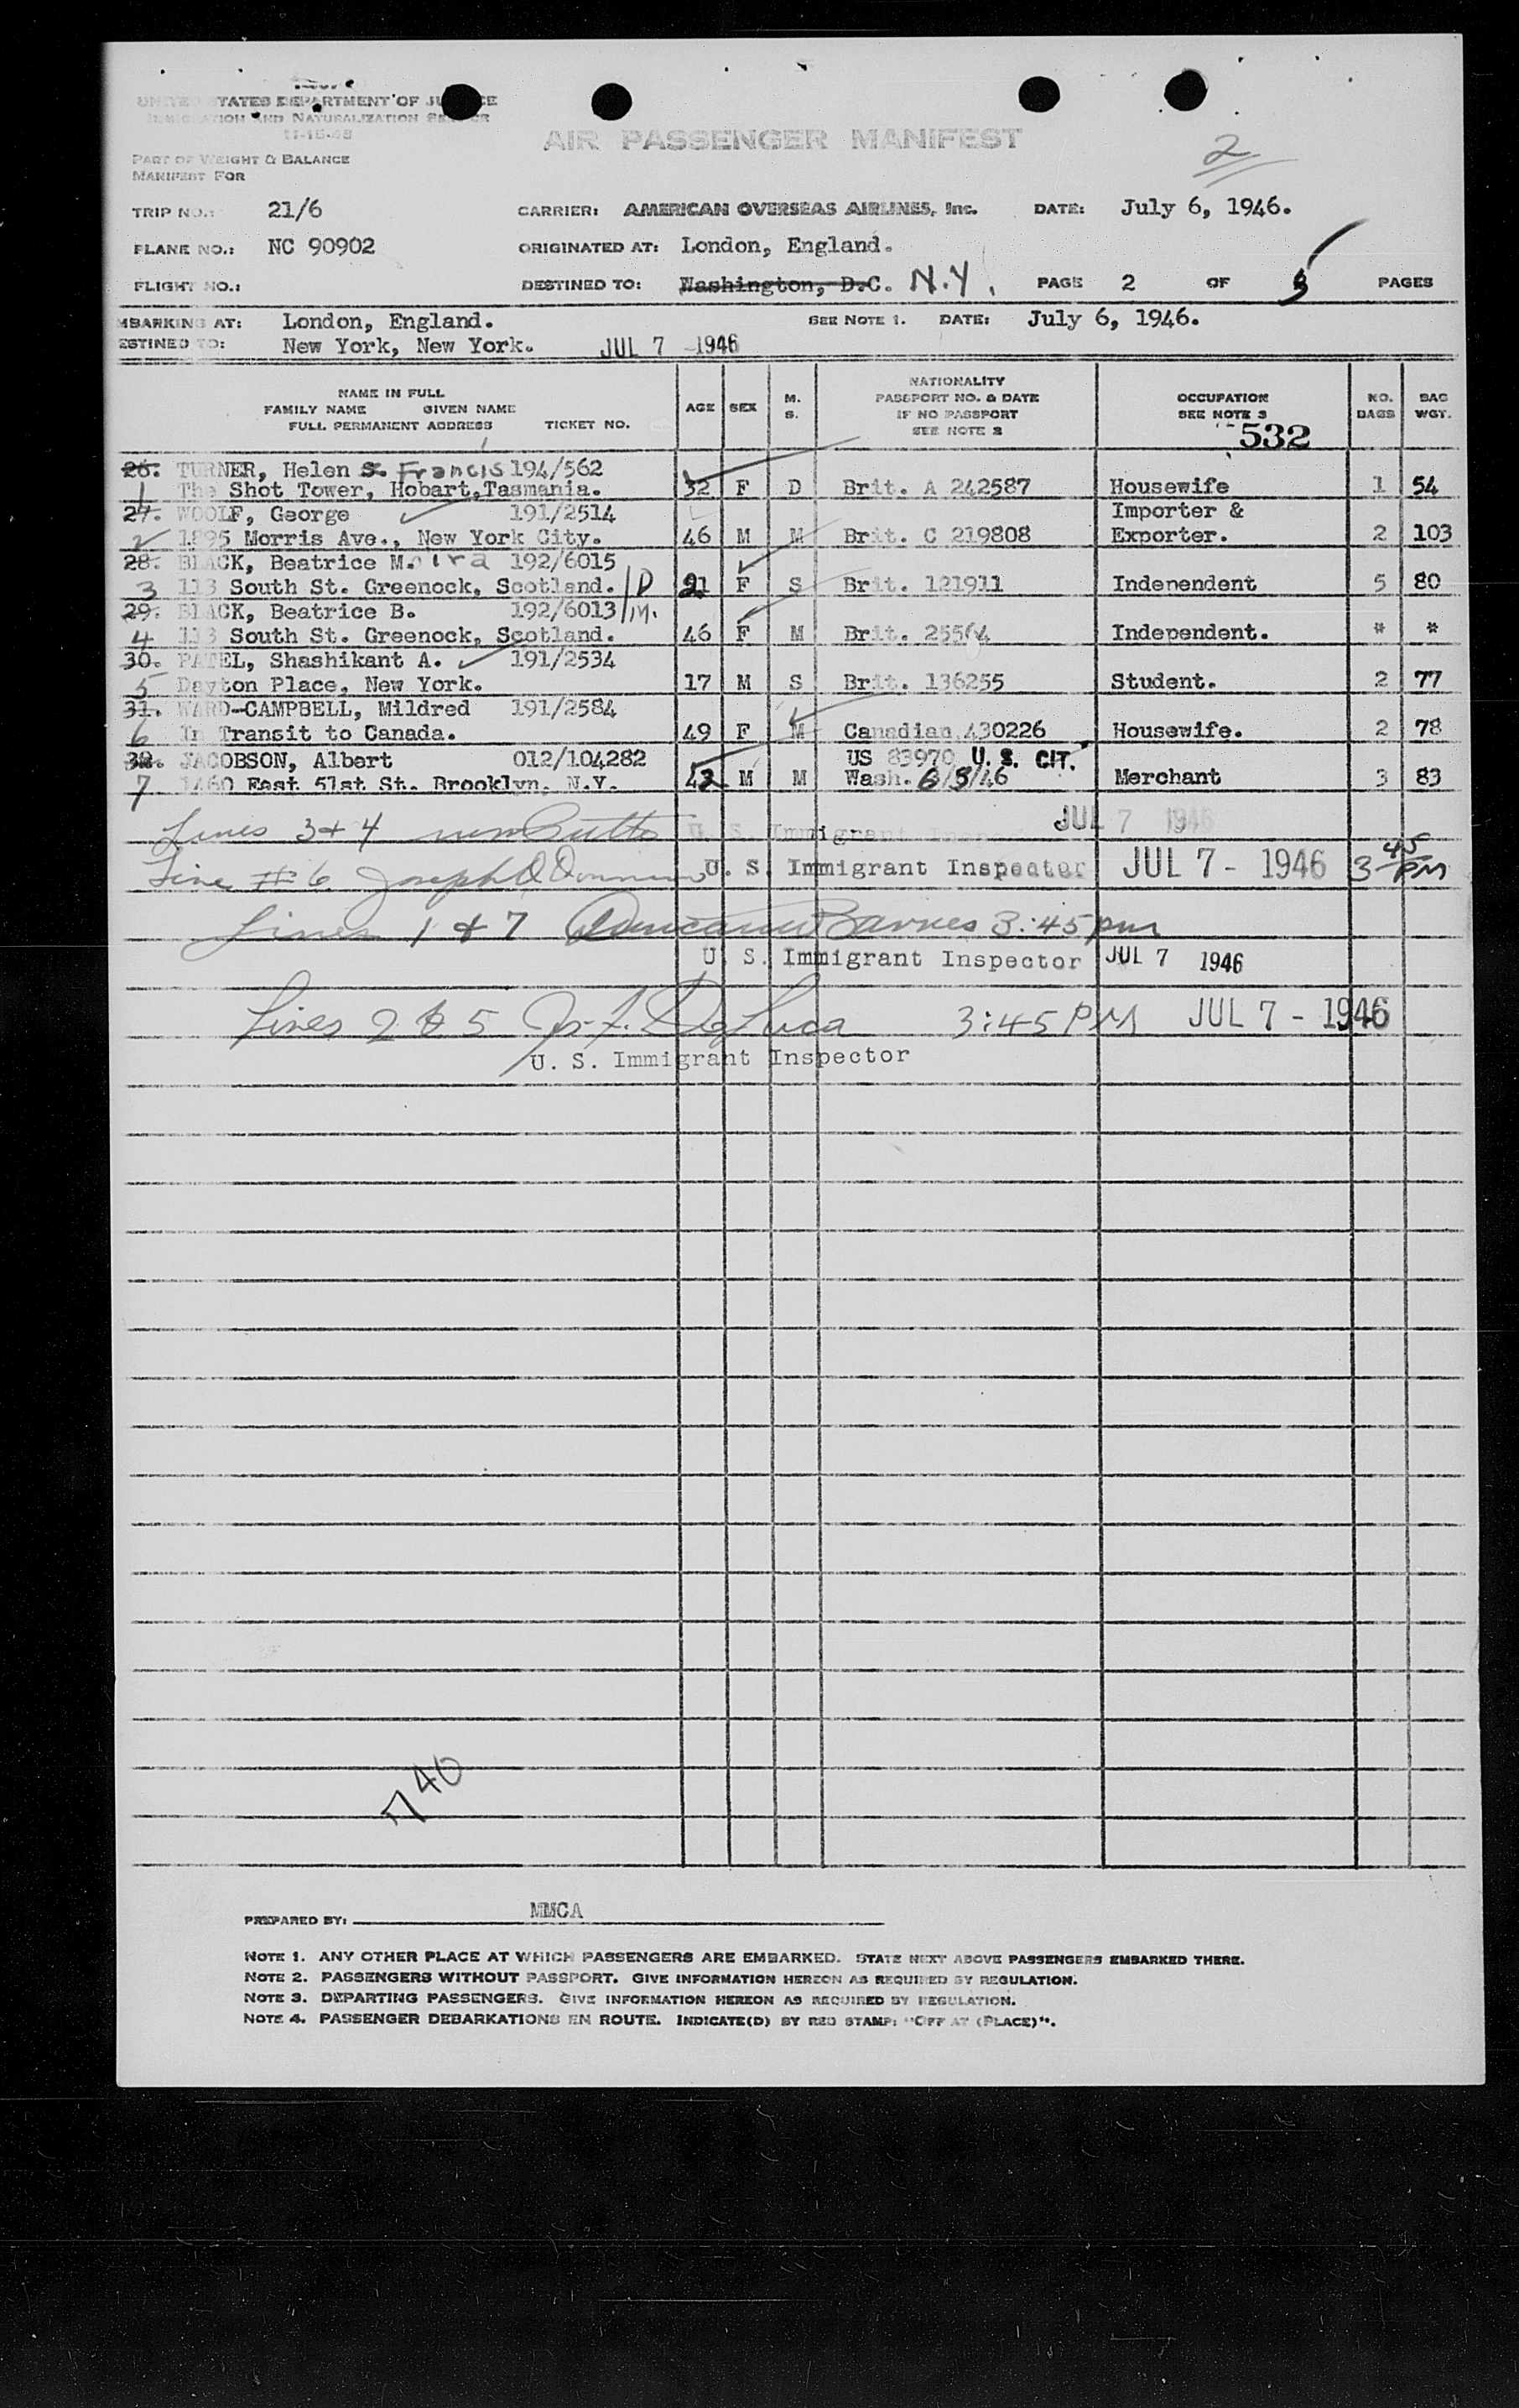 UNITED STATES DEPARTMENT OF JUSTICE
IMMIGRATION AND NATURALIZATION SERVICE
11-15-45
AIR PASSENGER MANIFEST
2
PART OF WEIGHT & BALANCE
MANIFEST FOR
TRIP NO.: 21/6 CARRIER: AMERICAN OVERSEAS AIRLINES, Inc. DATE: July 6, 1946.
PLANE NO.: NC 90902 ORIGINATED AT: London, England.
FLIGHT NO.: DESTINED TO: Washington, D.C. N.Y. PAGE 2 OF PAGES
EMBARKING AT: London, England. SEE NOTE 1. DATE: July 6, 1946.
DESTINED TO: New York, New York. JUL 7 - 1946
NAME IN FULL
FAMILY NAME GIVEN NAME
FULL PERMANENT ADDRESS TICKET NO.
AGE SEX M. S.
NATIONALITY
PASSPORT NO. & DATE
IF NO PASSPORT
SEE NOTE 2
OCCUPATION
SEE NOTE 3
NO. BAGS
BAG WGT.
532
26. TURNER, Helen S. Francis 194/562
1 The Shot Tower, Hobart, Tasmania. 32 F D Brit. A 242587 Housewife 1 54
27. WOOLF, George 191/2514 Importer &
2 1895 Morris Ave., New York City. 46 M M Brit. C 219808 Exporter. 2 103
28. BLACK, Beatrice Moira 192/6015
3 113 South St. Greenock, Scotland. D 21 F S Brit. 121911 Independent 5 80
29. BLACK, Beatrice B. 192/6013 M.
4 113 South St. Greenock, Scotland. 46 F M Brit. Independent. * *
30. PATEL, Shashikant A. 191/2534
5 Dayton Place, New York. 17 M S Brit. 136255 Student. 2 77
31. WARD-CAMPBELL, Mildred 191/2584
6 In Transit to Canada. 49 F M Canadian 430226 Housewife. 2 78
32. JACOBSON, Albert 012/104282 US 83970 U. S. CIT.
7 1460 East 51st St. Brooklyn, N.Y. 42 M M Wash. 6/5/46 Merchant 3 83
Lines 3 & 4 U. S. Immigrant Inspector JUL 7 1946
Line # 6 Joseph U. S. Immigrant Inspector JUL 7 - 1946 3 45 PM
Lines 1 & 7 Barnes 3:45 pm
U. S. Immigrant Inspector JUL 7 1946
Lines 2 & 5 DeLuca 3:45 PM JUL 7 - 1946
U. S. Immigrant Inspector
7/40
PREPARED BY: MMCA
NOTE 1. ANY OTHER PLACE AT WHICH PASSENGERS ARE EMBARKED. STATE NEXT ABOVE PASSENGERS EMBARKED THERE.
NOTE 2. PASSENGERS WITHOUT PASSPORT. GIVE INFORMATION HEREON AS REQUIRED BY REGULATION.
NOTE 3. DEPARTING PASSENGERS. GIVE INFORMATION HEREON AS REQUIRED BY REGULATION.
NOTE 4. PASSENGER DEBARKATIONS EN ROUTE. INDICATE(D) BY RED STAMP: "OFF AT (PLACE)".